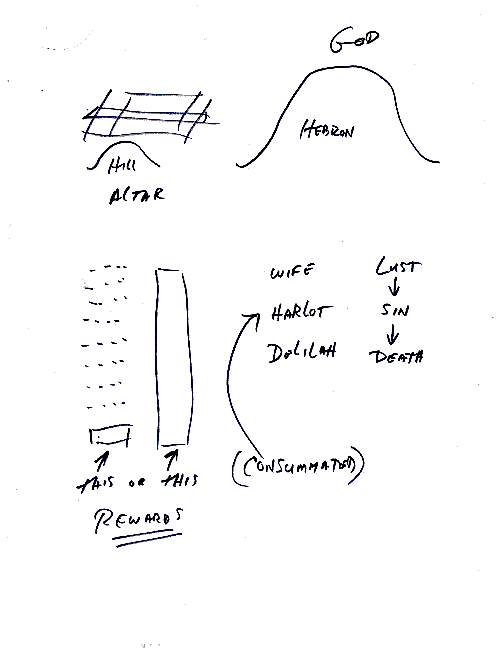 GOD
HEBRON
Hill
ALTAR
WIFE LUST
HARLOT SIN
DELILAH DEATH
(CONSUMMATED)
THIS OR THIS
REWARDS